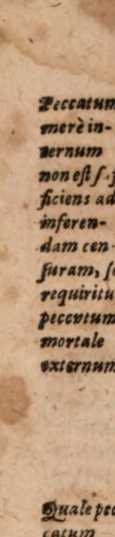 Peccatum
merè in-
ternum
non est s
ficiens ad
inferen-
dam cen-
suram, s
requiritu
peccatum
mortale
externum
Quale pec
catum